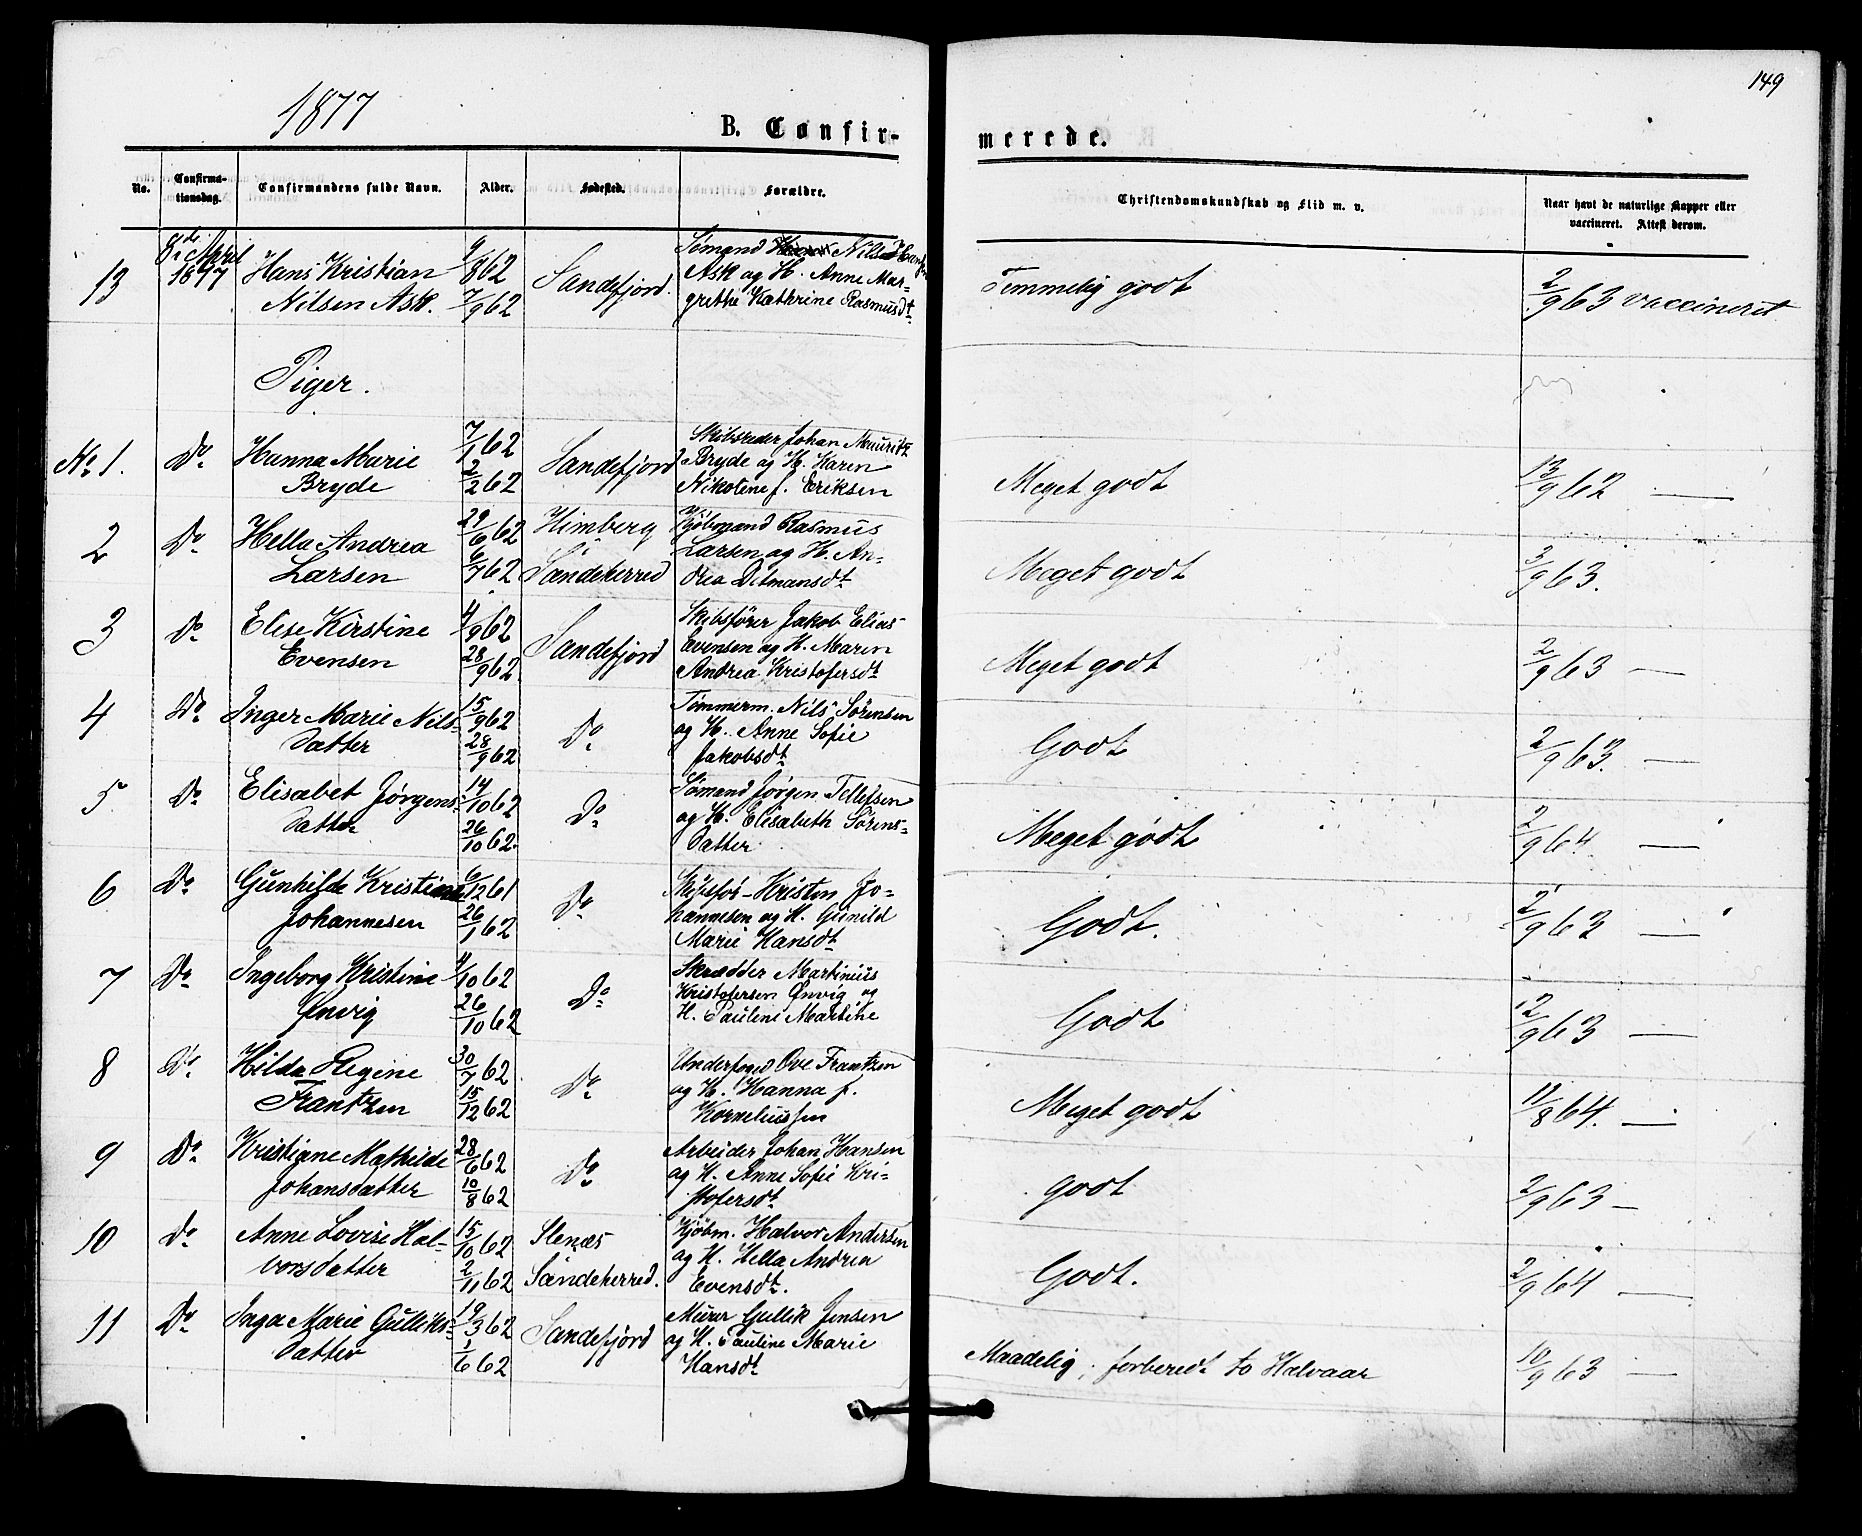 149
1877
B. Confir-
merede.
No.
Confirma-
tionsdag.
Confirmandens fulde Navn.
Alder.
Fødested.
Forældre.
Christendomskundskab og Flid m. v.
Naar havt de naturlige Kopper eller
vaccineret. Attest derom.
13
8de April
1877
Hans Kristian
Nilsen Ask.
9/8 62
7/9 62
Sandefjord.
Sømand Nils Hansen
Ask og H. Anne Mar-
grethe Kathrine Rasmusdt.
Temmelig godt
2/9 63 vaccineret
Piger.
No. 1.
Do.
Hanna Marie
Bryde
7/1 62
2/2 62
Sandefjord
Skibsreder Johan Mauritz
Bryde og H. Karen
Nikoline f. Eriksen
Meget godt
13/9 62 —
2
Do.
Hella Andrea
Larsen
29/6 62
6/7 62
Himberg
i
Sandeherred
Kjøbmand Rasmus
Larsen og H. An-
drea Ditmansdt.
Meget godt
3/9 63.
3
Do.
Elise Kirstine
Evensen
4/9 62
28/9 62
Sandefjord
Skibsfører Jakob Elias
Evensen og H. Maren
Andrea Kristofersdt.
Meget godt
2/9 63 —
4
Do.
Inger Marie Nils-
datter
15/9 62
28/9 62
Do.
Tømmerm. Nils Sørensen
og H. Anne Sofie
Jakobsdt.
Godt
2/9 63. —
5
Do.
Elisabet Jørgens-
datter
14/10 62
26/10 62.
Do.
Sømand Jørgen Tellefsen
og H. Elisabeth Sørens-
datter
Meget godt
2/9 64. —
6
Do.
Gunhilde Kristine
Johannesen
6/12 61
26/1 62
Do.
Kristen Jo-
hannesen og H. Gunild
Marie Hansdt.
Godt.
2/9 63 —
7
Do.
Ingeborg Kristine
Ønvig
4/10 62
26/10 62
Do.
Skrædder Martinius
Kristofersen Ønvig og
H. Pauline Martine
Godt
2/9 63 —
8
Do.
Hilda Regine
Frantzen
30/7 62
15/12 62
Do.
Underfoged Ove Frantzen
og H. Hanna f.
Korneliussen
Meget godt
11/8 64. —
9
Do.
Kristiane Mathilde
Johansdatter
28/6 62
10/8 62
Do.
Arbeider Johan Hansen
og H. Anne Sofie Kri-
stofersdt.
godt
2/9 63 —
10
Do.
Anne Lovise Hal-
vorsdatter
15/10 62
2/11 62
Stenæs
Sandeherred.
Kjøbm. Halvor Andersen
og H. Hella Andrea
Evensdt.
Godt.
2/9 64 —
11
Do.
Inga Marie Gulliks-
datter
19/3 62
1/6 62
Sandefjord
Murer Gullik Jensen
og H. Pauline Marie
Hansdt.
Maadelig, forberedt to Halvaar
10/9 63 —